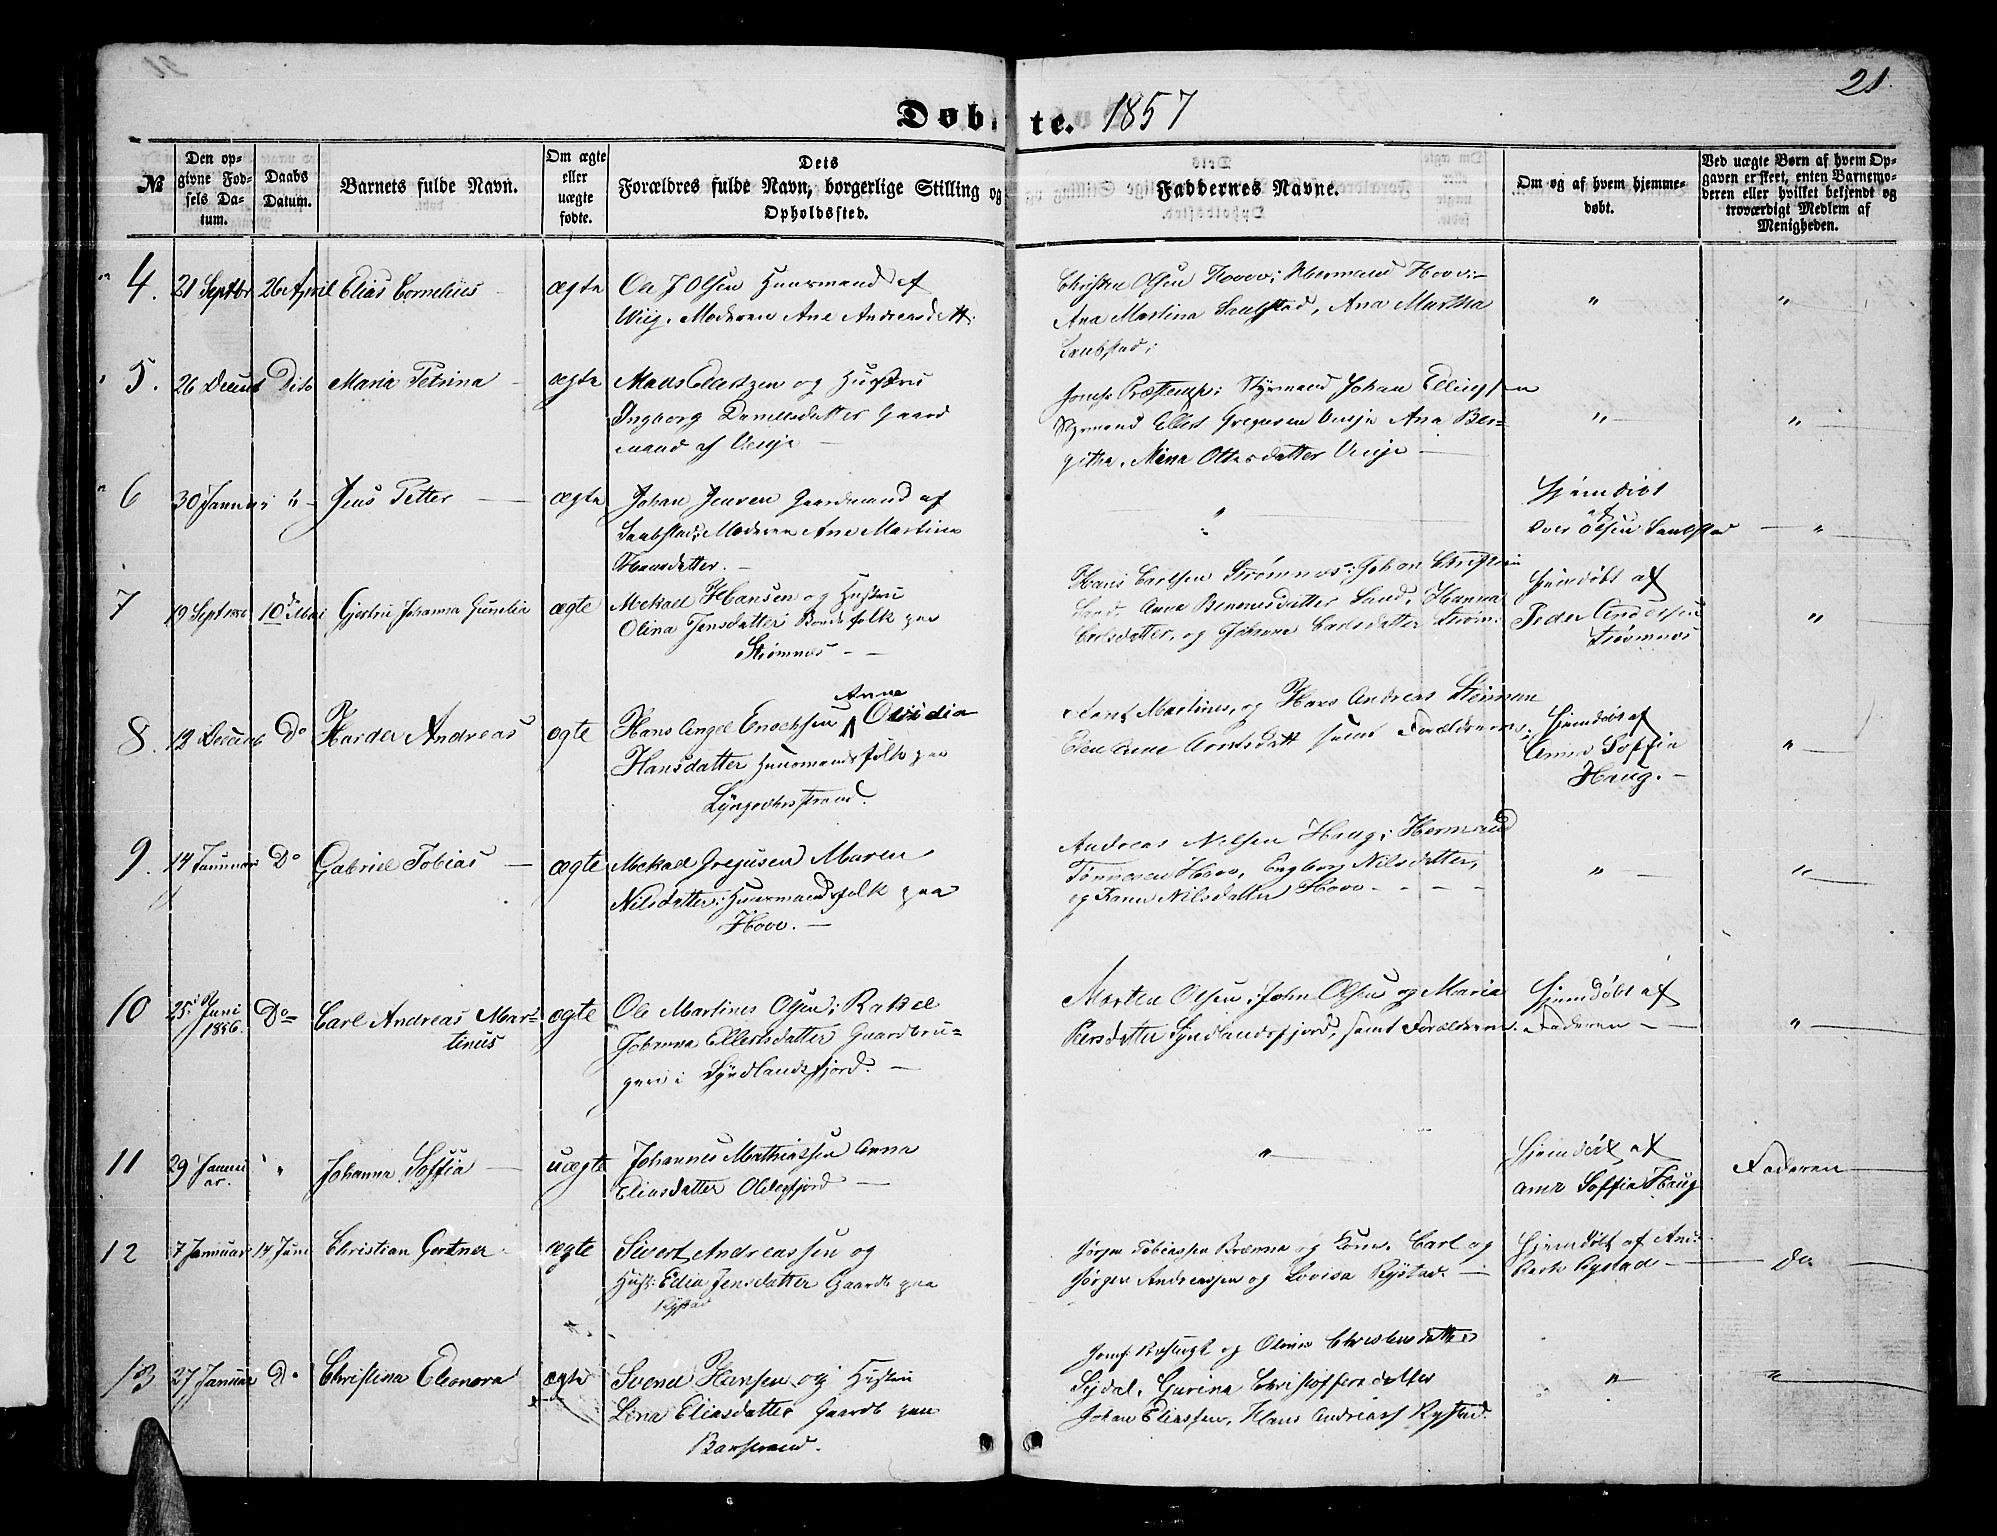 21.
Døbte. 1857
№
Den opgivne Fødsels Datum.
Daabs Datum.
Barnets fulde Navn.
Om ægte eller uægte fødte.
Dets Forældres fulde Navn, borgerlige Stilling og Opholdssted.
Faddernes Navne.
Om og af hvem hjemmedøbt.
Ved uægte Børn af hvem Opgaven er skeet, enten Barnemoderen eller hvilket bekjendt og troværdigt Medlem af Menigheden.
4. 21 Septbr 26 April Elias Cornelius ægte
Ole J Olsen Huusmand af
Wiig. Moderen Ane Andreasdatt.
Christen Olsen Hovov; Hermand Hoov.
Ana Martina Saubstad, Ana Martha
Saubstad;
" "
5. 26 Decemb Dito Maria Petrina ægte
Mads Ellertzen og Hustru
Ingborg Danielsdatter Gaard
mand af Venje
Styrmand Johan Ellingsen
Styrmand Ellert Gregusen Venje Ana Ber-
githa, Mina Ottesdatter Venje
" "
6 30 Januar " Jens Petter ægte
Johan Jensen Gaardmand af
Saubstad; Moderen Ane Martine
Hansdatter.
"
Hjemdøbt
af
Iver Olsen Saubstad
"
7 19 Sept 10 Mai Gjertru Johanna Gunelia ægte
Mekael Hansen og Hustru
Olina Jensdatter Bondefolk paa
Strømnes
Hans Carlsen Strømnes; Johan Christian
Sand, Anne Benonisdatter Sand, Hanna
Carlsdatter, og Johanna Carlsdatter Strøm.
Hjemdøbt af
Peder Andersen
Strømnes
"
8. 12 Decemb Do Harder Andreas ægte
Hans Angel Enochsen Anne Ovidia
Hansdatter Huusmandsfolk paa
Lyngværstrand.
Martines, og Hans Andreas
Elen Anne Arntsdatt samt Forældrene.
Hjemdøbt af
Anne Soffia
Haug.
"
9. 14 Januar Do Gabriel Tobias ægte
Mekael Gregusen Maren
Nilsdatter; Huusmandsfolk paa
Hovo.
Andreas Nilsen Haug; Hermand
Tønnesen Hovo, Engborg Nilsdatter,
og Karen Nilsdatter Hovo
" "
10 25 Juni 1856. Do Carl Andreas Mar-
tinus ægte
Ole Martines Olsen; Rakel
Johanna Ellertsdatter Gaardbru-
gere i Syndlandsfjord.
Morten Olsen; John Olsen og Maria
Persdatter Syndlandsfjord, samt Forældrene.
Hjemdøbt af
Faderen
"
11 29 Janu
ar. " Johanna Soffia uægte
Johannes Mathiassen Anna
Eliasdatter Olderfjord
"
Hjemdøbt af
Anne Soffia Haug
Faderen
12 7 Januar 14 Juni Christian Gertner ægte
Sivert Andreassen og
Hust: Edia Jensdatter Gaardb paa
Rystad
Jørgen Tobiassen Brenna og Kone. Carl og
Jørgen Andreassen og Lovisa Rystad.
Hjemdøbt af And.
Rystad
Do
13 27 Januar Do Christina Eleonora ægte
Svend Hansen og Hustru
Lina Eliasdatter Gaardb paa
Barstrand.
og Olovia Christensdatter
Sydal. Gurina Christoffersdatter
Johan Eliassen, Hans Andreas Rystad.
" "